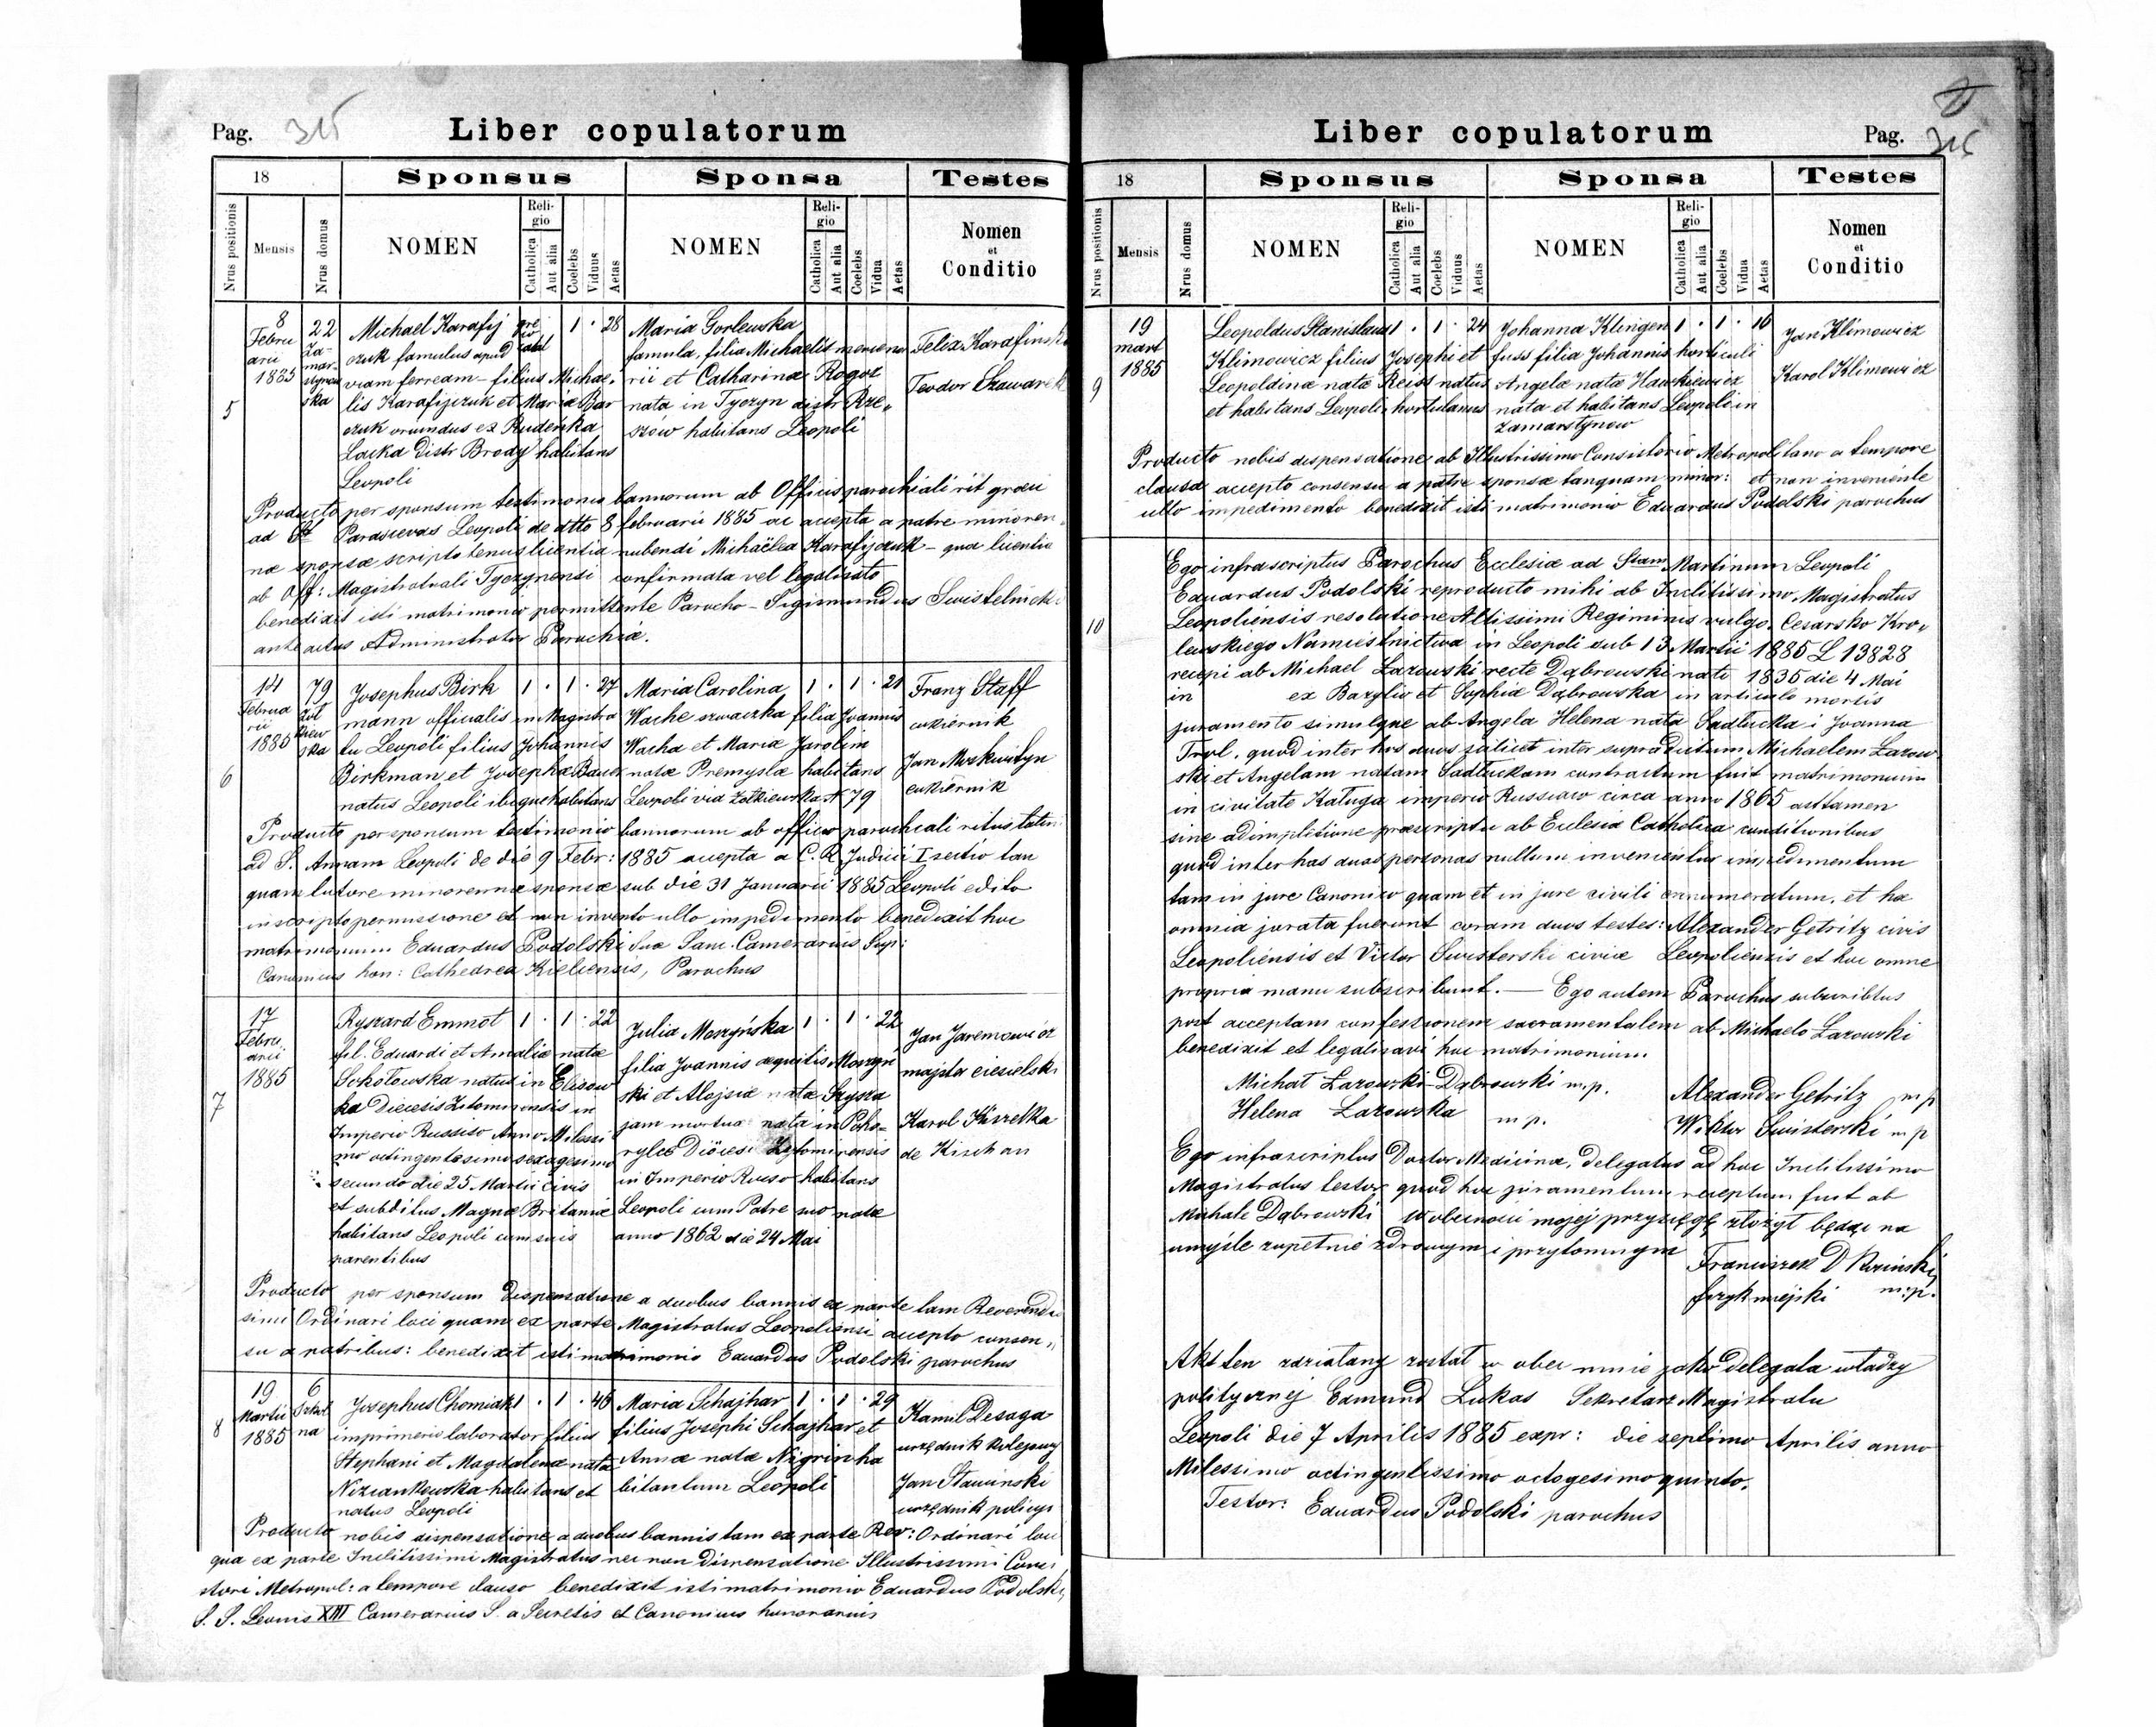 Pag. 315
Liber copulatorum
18
Sponsus
Sponsa
Testes
Nrus positionis
Mensis
Nrus domus
NOMEN
Religio
Catholica
Aut alia
Coelebs
Viduus
Aetas
NOMEN
Religio
Catholica
Aut alia
Coelebs
Vidua
Aetas
Nomen
et
Conditio
5
8
Febru
arii
1885
22
Za-
mar-
stynow
ska
Michael Karafij
czuk famulus apud
viam ferream – filius Michae-
lis Karafijczuk et Mariæ Bar
czuk oriundus ex Rudenka
Lacka distr Brody habitans
Leopoli
1 · 28
Maria Gorlewska
famula, filia Michaelis mercena
rii et Catharinæ Rogoz
nata in Tyczyn distr Rze„
szów habitans Leopoli
Felix Karafinski
Teodor
Producto per sponsum testimonio bannorum ab Officio parochiali rit græci
ad St Parascevas Leopoli de dtto 8 februarii 1885 ac accepta a patre minoren
næ sponsæ scripto tenus licentia nubendi Michaëlea Karafijczuk – qua licentia
ab Off: Magistratuali Tyczynensi confirmata vel legalisata
benedixit isti matrimonio permittente Parocho – Sigismundus Swistelnicki
ante actus Administrator Parochiæ.
6
14
Februa
rii
1885
79
Żół
kiew
ska
Josephus Birk
mann officialis in Magistra
tu Leopoli filius Johannis
Birkman et Josephæ Bauer
natus Leopoli ibique habitans
1 · 1 · 27
Maria Carolina
Wache szwaczka filia Joannis
Wacha et Mariæ Jarolim
natæ Premyslæ habitans
Leopoli via Żołkiewska N 79
1 · 1 · 21
Franz Staff
cukiernik
Jan Moskwityn
cukiernik
Producto per sponsum testimonio bannorum ab officio parochiali ritus latini
ad S. Annam Leopoli de die 9 Febr: 1885 accepta a C. R. Judicii I sectio tan
quam tutore minorennæ sponsæ sub die 31 Januarii 1885 Leopoli edito
in scripto permissione et non invento ullo impedimento benedixit hoc
matrimonium Eduardus Podolski Suæ Sanc. Camerarius Sup:
Canonicus hon: Cathedrea Kielcensis, Parochus
7
17
Febru
arii
1885
Ryszard Emmot
fil. Eduardi et Amaliæ natæ
Sokołowska natus in Elisow
ka Diecesis Zitomirensis in
Imperio Russiso Anno Milessi
mo octingentesimo sexagesimo
secundo die 25 Martii civis
et subditus Magnæ Britaniæ
habitans Leopoli cum suis
parentibus
1 · 1 · 22
Julia Moszyńska
filia Joannis æquitis Moszyń
ski et Alojsiæ natæ Szysza
jam mortua nata in Poho-
ryles Diöcesi Zytomirensis
in Imperio Russo habitans
Leopoli cum Patre suo nata
anno 1862 die 24 Mai
1 · 1 · 22
Jan Jaremowicz
majster ciesielski
Karol Kiszelka
de Kischan
Producto per sponsum dispensatione a duobus bannis ex parte tam Reverendis
simi Ordinari loci quam ex parte Magistratus Leopoliensi accepto consen„
su a patribus: benedixit isti matrimonio Eduardus Podolski parochus
8
19
Martii
1885
6
Szkol
na
Josephus Chomiak
imprimerie laborator filius
Stephani et Magdalenæ nata
Niziankowska habitans et
natus Leopoli
1 · 1 · 46
Maria Schajhar
filius Josephi Schajhar et
Annæ natæ Nigrin ha
bitantum Leopoli
1 · 1 · 29
Kamil Desaga
urzędnik kolejowy
Jan Stawinski
urzędnik policyi
Producto nobis dispensatione a duobus bannis tam ex parte Rev: Ordinari loci
qua ex parte Inclitissimi Magistratus nec non dispensatione Illustrissimi Consi
stori Metropol: a tempore clauso benedixit isti matrimonio Eduardus Podolski,
S. S. Leonis XIII Camerarius S. a Secretis et Canonicus honorarius
Liber copulatorum
Pag. 316
18
Sponsus
Sponsa
Testes
Nrus positionis
Mensis
Nrus domus
NOMEN
Religio
Catholica
Aut alia
Coelebs
Viduus
Aetas
NOMEN
Religio
Catholica
Aut alia
Coelebs
Vidua
Aetas
Nomen
et
Conditio
9
19
mart
1885
Leopoldus Stanislaus
Klimowicz filius Josephi et
Leopoldinæ natæ Reiss natus
et habitans Leopoli hortulanus
1 · 1 · 24
Johanna Klingen
fuss filia Johannis horticuli
Angelæ natæ Hawkiewicz
nata et habitans Leopoli in
Zamarstynow
1 · 1 · 16
Jan Klimowicz
Karol Klimowicz
Producto nobis dispensatione ab Illustrissimo Consistorio Metropolitano a tempore
clausa accepto consensu a patre sponsæ tanquam minor: et non inveniente
ullo impedimento benedixit isti matrimonio Eduardus Podolski parochus
10
Ego infrascriptus Parochus Ecclesiæ ad Stam Martinum Leopoli
Eduardus Podolski reproducto mihi ab Inclitissimo Magistratus
Leopoliensis resolutione Altissimi Regiminis vulgo Cesarsko Kro„
lewskiego Namiestnictwa in Leopoli sub 13 Martii 1885 L 13828
recepi ab Michael Lazowski recte Dąbrowski nati 1835 die 4 Mai
in ex Bazylio et Sophia Dąbrowska in articulo mortis
juramento simulque ab Angela Helena nata Sadłucka i Joanna
Trol, quod inter hos duos scilicet inter supradictum Michaelem Lazow
ski et Angelam natam Sadłuckam contractum fuit matrimonium
in civitate Kaługa imperio Russiaco circa anno 1865 asttamen
sine adimpletione præscriptu ab Eclesia Catholica conditionibus
quod inter has duas personas nullum invenientur impedimentum
tam in jure Canonico quam et in jure civili ennumeratum, et hæ
omnia jurata fuerunt coram duos testes: Alexander Getritz civis
Leopoliensis et Victor Swisterski civice Leopoliensis et hoc omne
propria manu subscribunt. — Ego autem Parochus subscribtus
post acceptam confessionem sacramentalem ab Michaelo Lazowski
benedixit et legalizavi hoc matrimonium.
Michał Lazowski-Dąbrowski m.p.
Helena Lazowska m.p.
Alexander Getritz m p
Wiktor Swisterski m p
Ego infrascriptus Doctor Medicinæ, delegatus ad hoc Inclitissimo
Magistratus testor quod hoc juramentum receptum fuit ab
Michale Dąbrowski w obecności mojej przysięgę złożył będąc na
umyśle zupełnie zdrowym i przytomnym
Franciszek D
fizyk miejski m.p.
Akt ten zdziałany został w obec mnie jako delegata władzy
politycznej Edmund Lukas Sekretarz Magistratu
Leopoli die 7 Aprilis 1885 expr: die septimo Aprilis anno
Milessimo octingentissimo octogesimo quinto.
Testor: Eduardus Podolski parochus